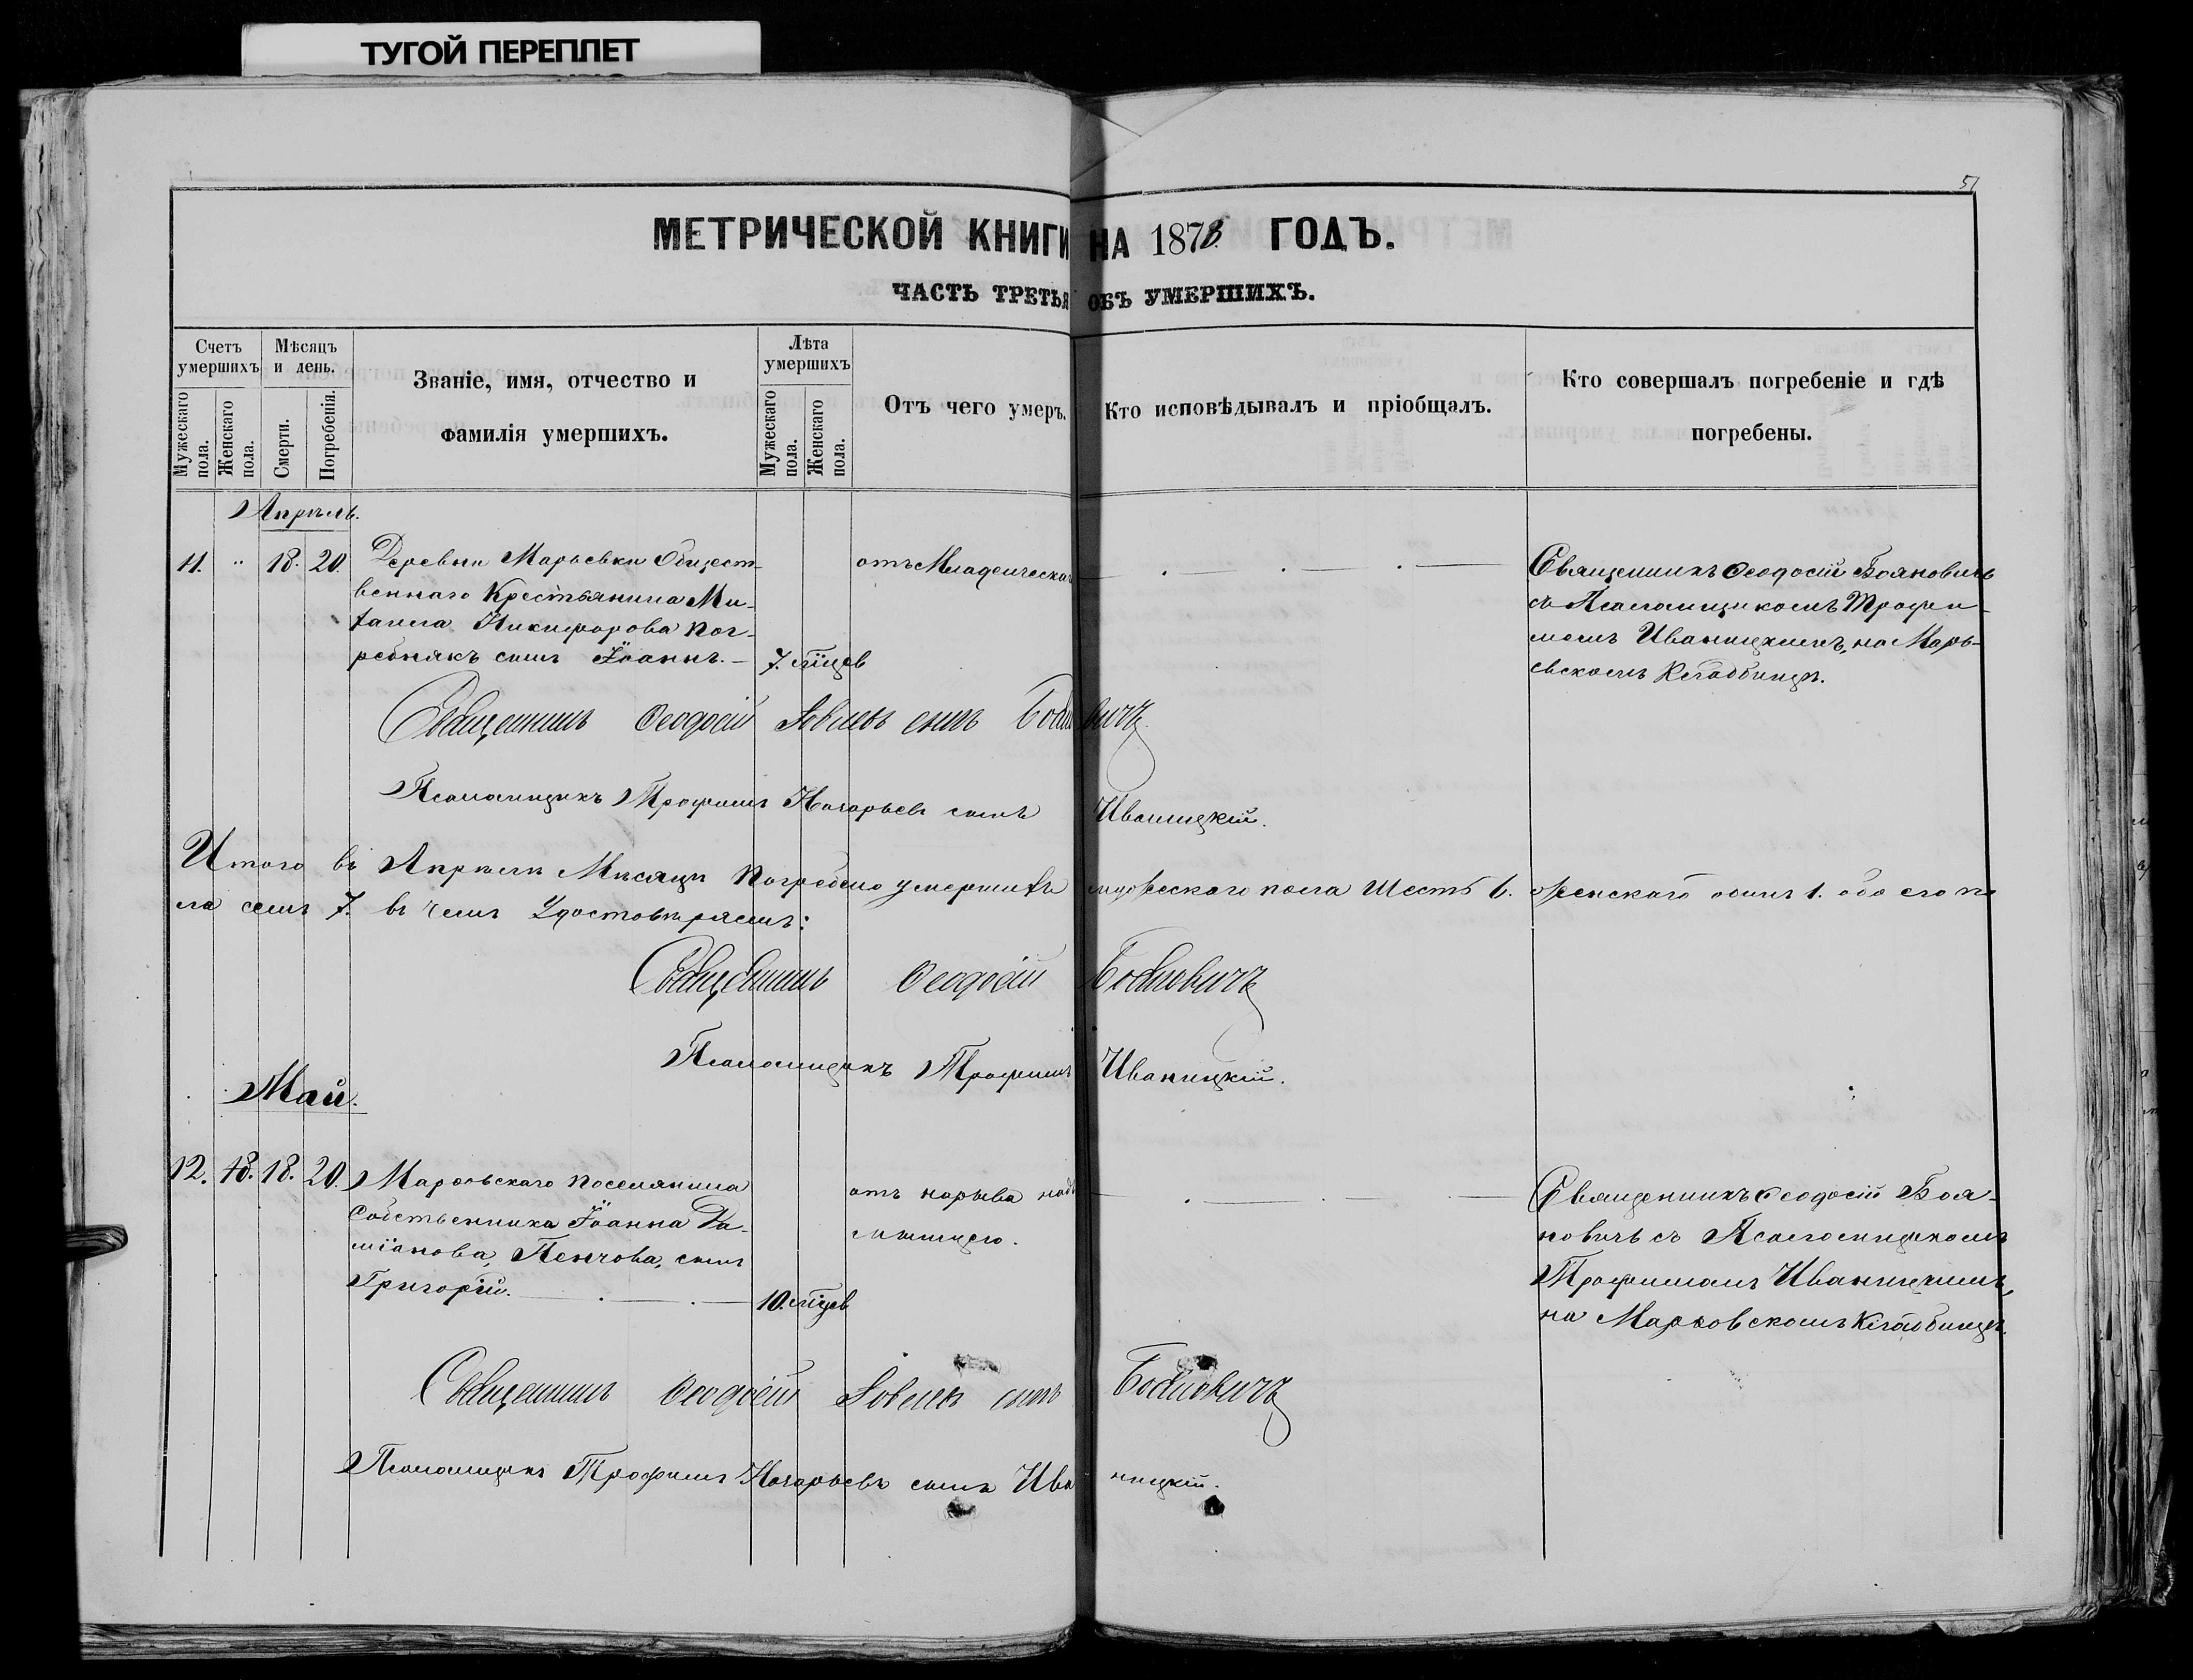 ТУГОЙ ПЕРЕПЛЕТ
51
МЕТРИЧЕСКОЙ КНИГИ НА 1878 ГОДЪ.
ЧАСТЬ ТРЕТЬЯ ОБЪ УМЕРШИХЪ.
Счетъ умершихъ
Мужескаго пола.
Женскаго пола.
Мѣсяцъ и день.
Смерти.
Погребенія.
Званіе, имя, отчество и
фамилія умершихъ.
Лѣта умершихъ
Мужескаго пола.
Женскаго пола.
Отъ чего умеръ.
Кто исповѣдывалъ и пріобщалъ.
Кто совершалъ погребеніе и гдѣ
погребены.
Апрѣль.
11. " 18. 20.
Деревни Марьевки Общест-
веннаго Крестьянина Ми-
хаила Никифорова Пог-
ребнякъ сынъ Іоаннъ. —
7. мѣцев
отъ Младенческаго
Священникъ Феодосій Бояновичъ
съ Псаломщикомъ Трофи-
момъ Иваницкимъ, на Марь-
евскомъ Кладбищѣ.
Священникъ Феодосій сынъ Бояновичъ
Псаломщикъ Трофимъ Назарьевъ сынъ Иваницкій.
Итого въ Апрѣлѣ Мѣсяцѣ погребено умершихъ мужескаго пола Шесть 6. женскаго одинъ 1. обоего по
ла семь 7. въ чемъ Удостовѣряемъ:
Священникъ Феодосій Бояновичъ
Псаломщикъ Трофимъ Иваницкій.
Май.
12. 18. 18. 20.
поселянина
Собственника Іоанна Да-
міанова, Пенчова, сынъ
Григорій.
10. мѣцев
отъ нарыва
Священникъ Феодосій Боя-
новичъ съ Псаломщикомъ
Трофимомъ Иваницкимъ,
на Кладбищѣ.
Священникъ Феодосій сынъ Бояновичъ
Псаломщикъ Трофимъ Назарьевъ сынъ Иваницкій.